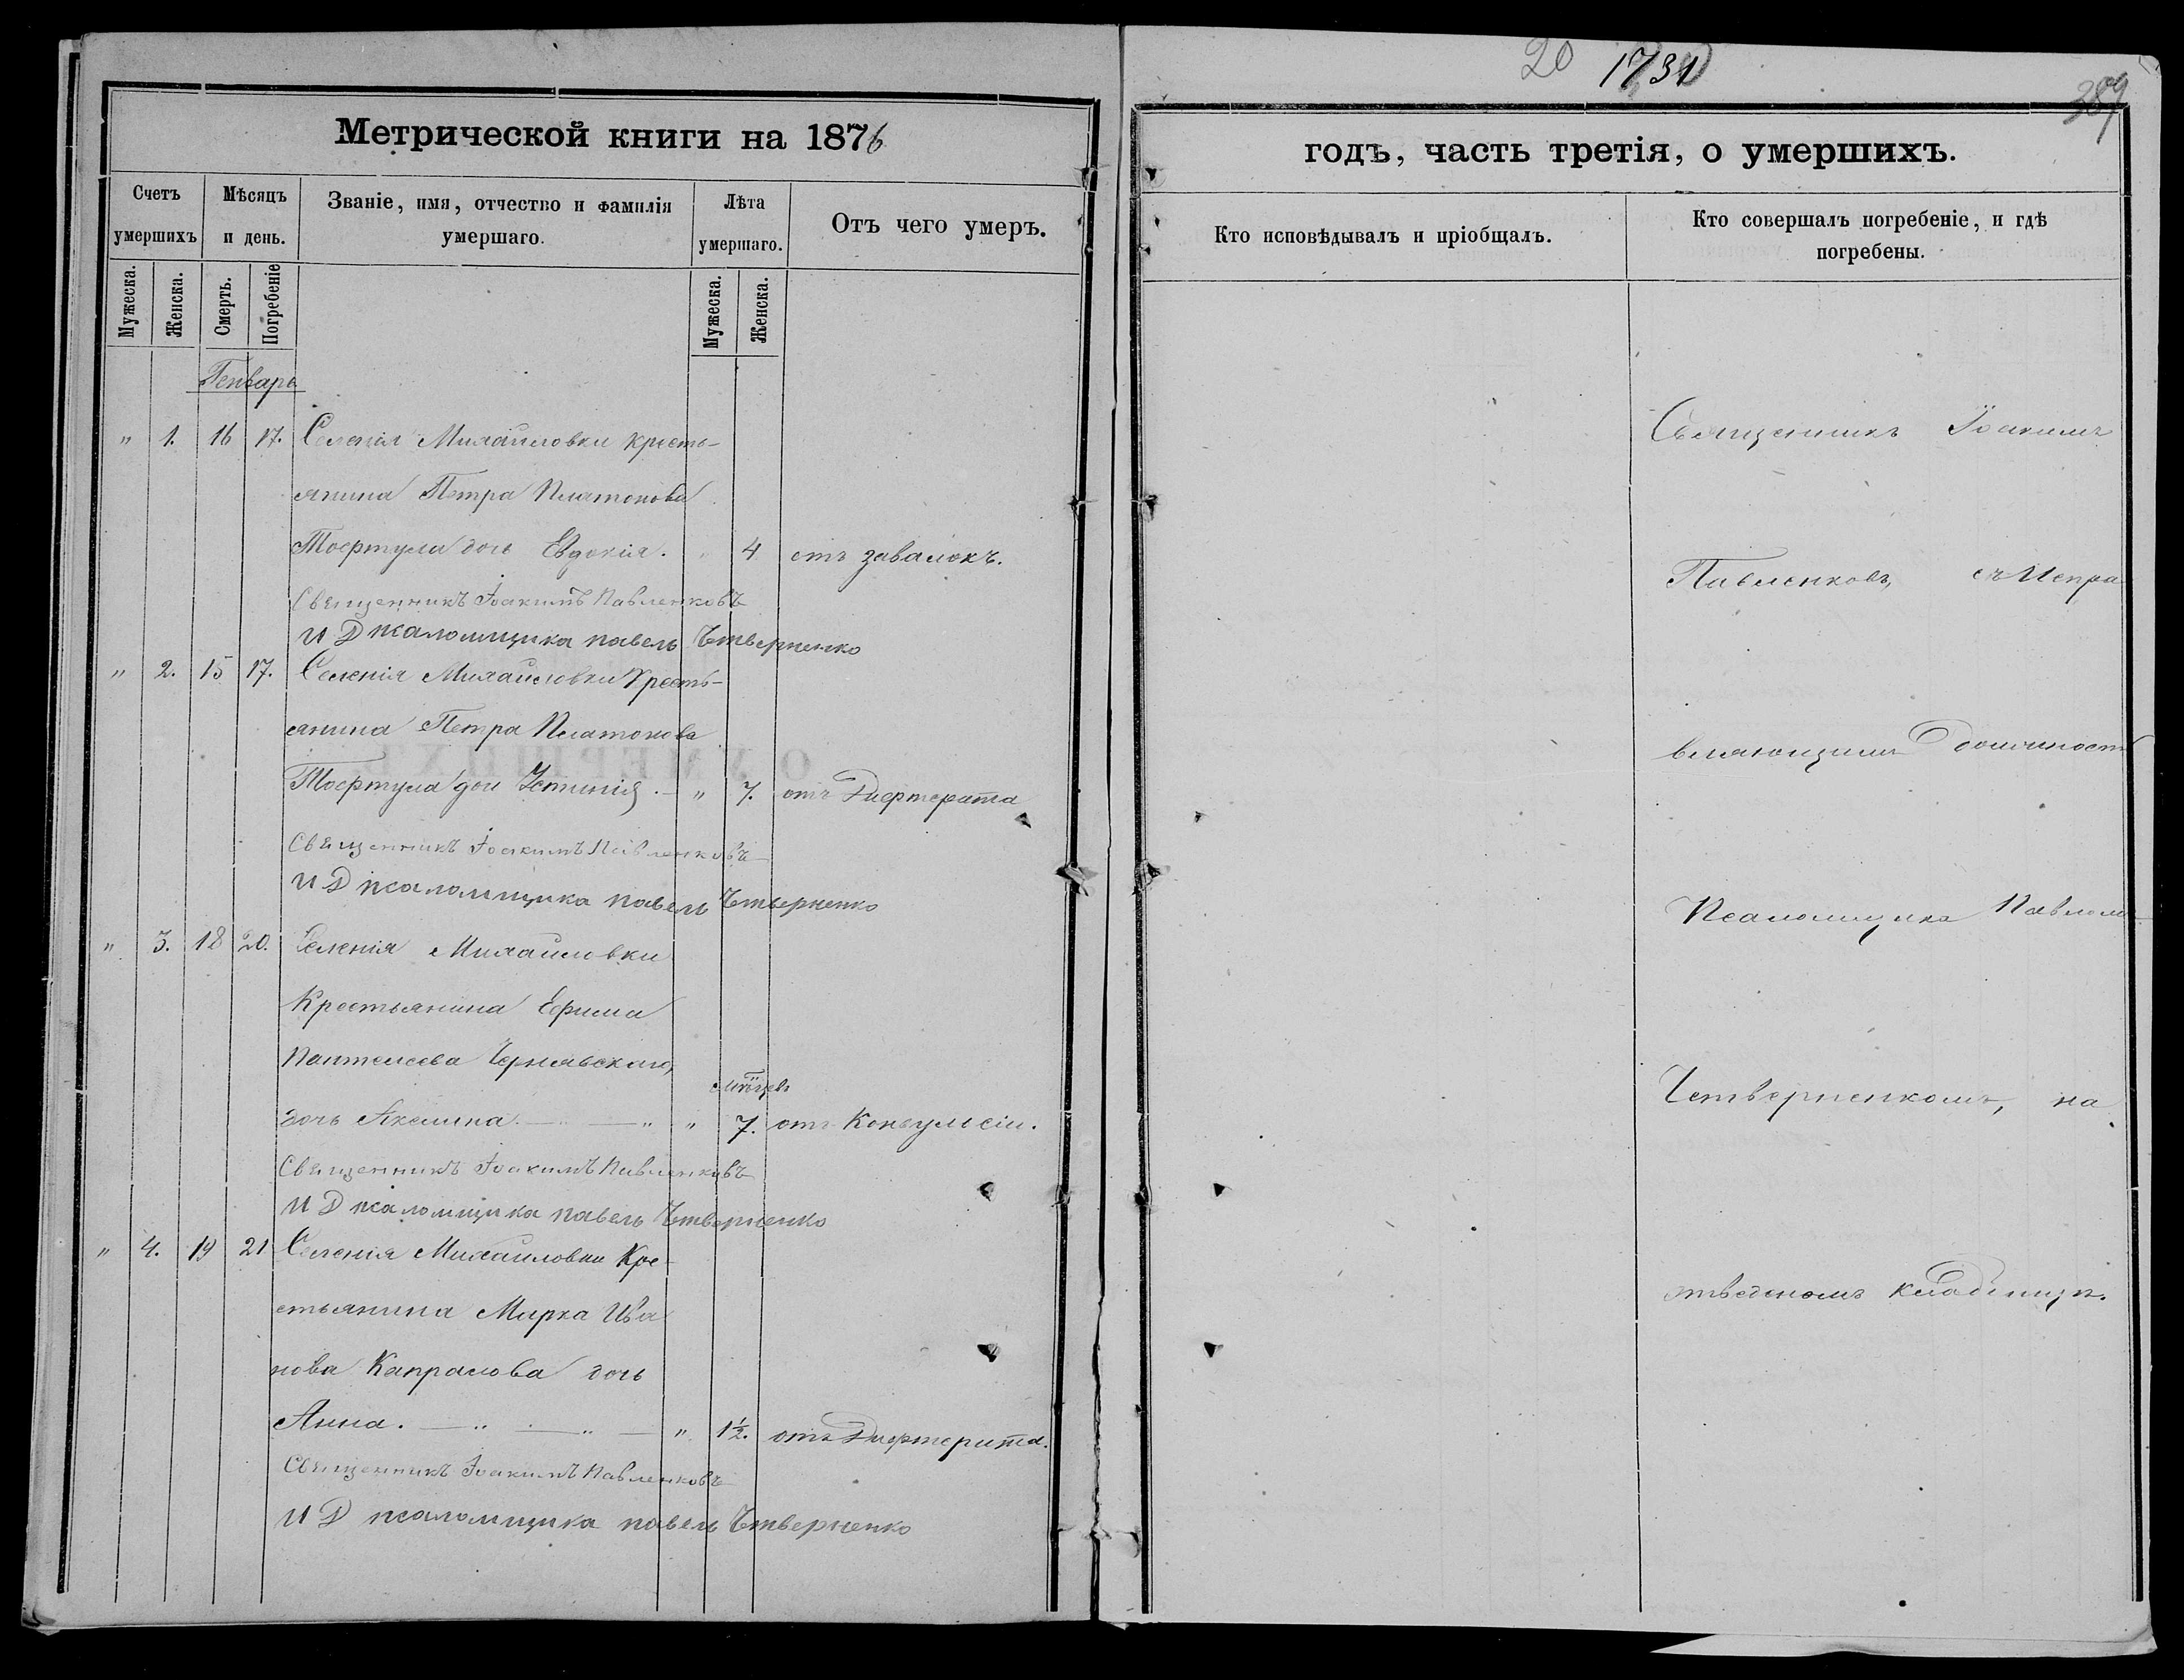 Метрической книги на 1876
Счетъ умершихъ
Мѣсяцъ и день.
Званіе, имя, отчество и фамилія умершаго.
Лѣта умершаго.
Отъ чего умеръ.
Мужеска.
Женска.
Смерть.
Погребеніе
Мужеска.
Женска.
Генварь
" 1. 16 17. Селенія Михайловки кресть-
янина Петра Платонова
дочь Евдокія. " 4 отъ завалокъ.
Священникъ Іоакимъ Павленковъ
И Д псаломщика павелъ Четверненко
" 2. 15 17. Селенія Михайловки Кресть-
янина Петра Платонова
дочь Устинія. — " 7. отъ Дифтерита
Священникъ Іоакимъ Павленковъ
И Д псаломщика павелъ Четверненко
" 3. 18 20. Селенія Михайловки
Крестьянина Ефима
Пантелеева Чернявскаго,
мѣсяцевъ
дочь Акелина. — " — " " 7. отъ Конвульсіи.
Священникъ Іоакимъ Павленковъ
И Д псаломщика павелъ Четверненко
" 4. 19 21 Селенія Михайловки Кре-
стьянина Марка Ива
нова Капралова дочь
Анна. — " — " — " 1½. отъ Дифтерита.
Священникъ Іоакимъ Павленковъ
И Д псаломщика павелъ Четверненко
20 1731
389
годъ, часть третія, о умершихъ.
Кто исповѣдывалъ и пріобщалъ.
Кто совершалъ погребеніе, и гдѣ погребены.
Священникъ Іоакимъ
Павленковъ, съ Испра
вляющимъ Должность
Псаломщика Павломъ
Четверненкомъ, на
отведеномъ кладбищѣ.